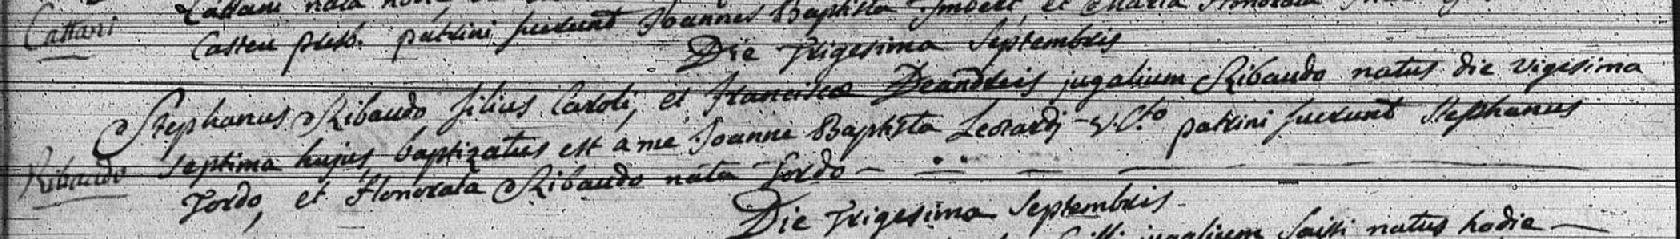 Cattani
Cattani nata
Casteu presb. patrini fuerunt Joannes Baptista Imbert, et Maria Honorata
Die Trigesima Septembris
Stephanus Ribaudo filius Caroli, et Franciscæ Deandreis jugalium Ribaudo natus die vigesima
Ribaudo
septima hujus baptizatus est a me Joanne Baptista Leotardj V. C.to patrini fuerunt Stephanus
Tordo, et Honorata Ribaudo nata Tordo
Die Trigesima Septembris
jugalium natus hodie